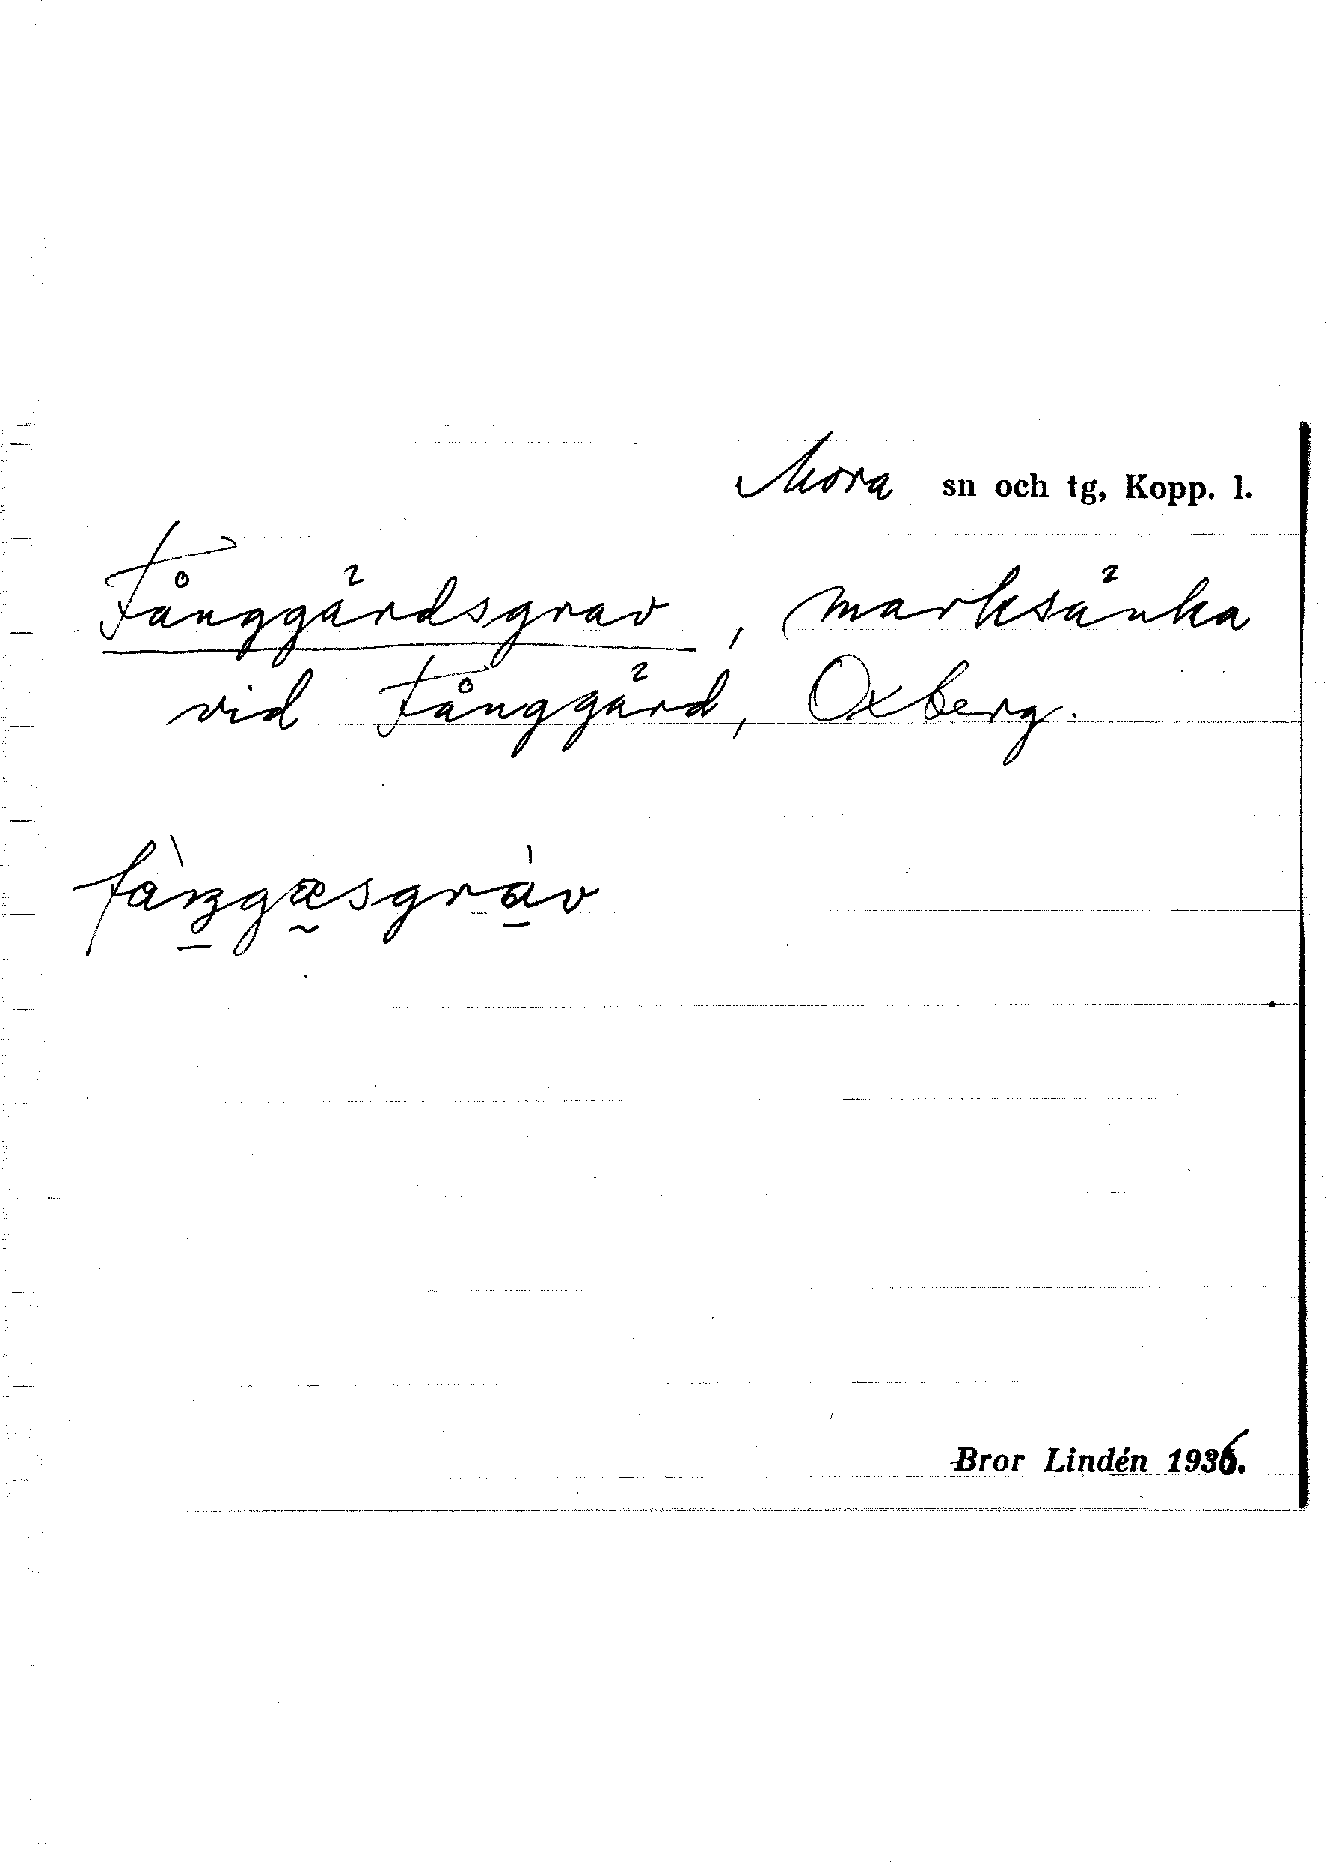 Mora sn och tg, Kopp. l.
Fånggärdsgrav, marksänka
vid Fånggärd, Oxberg.
fàŋgæsgràv
Bror Lindén 1936.